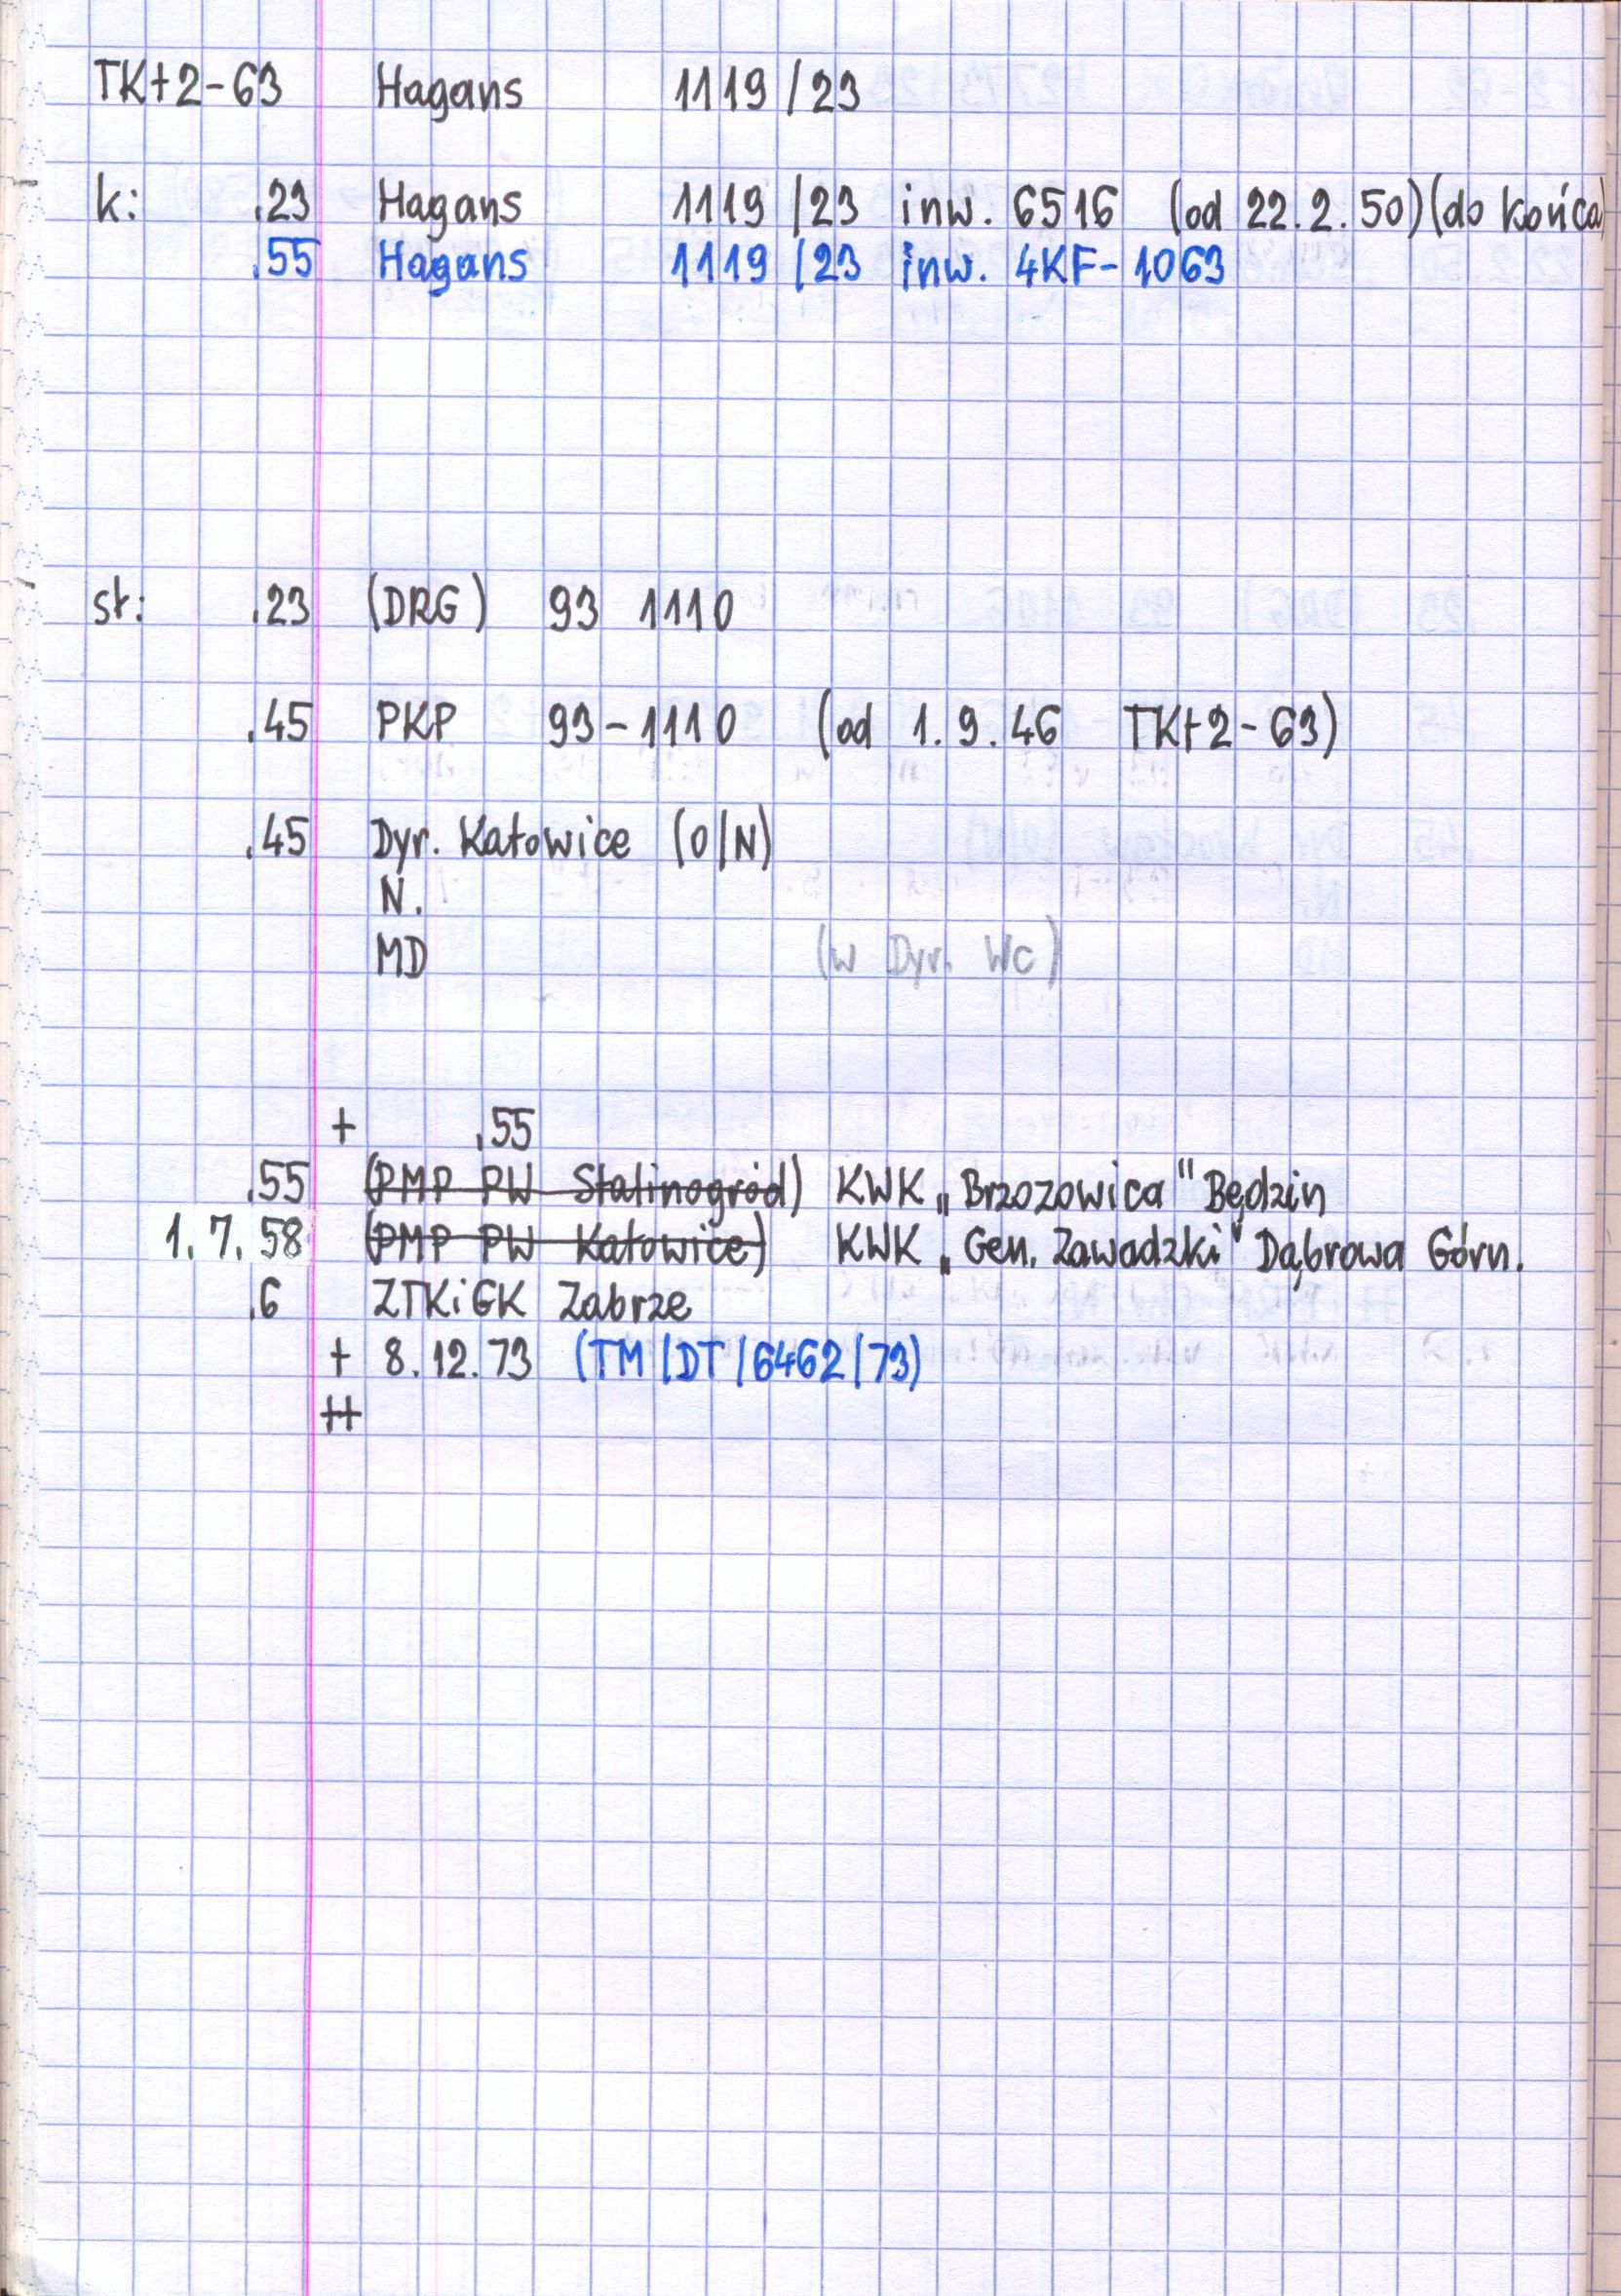 TKt2-63 Hagans 1119/23
k: .23 Hagans 1119/23 inw. 6516 (od 22.2.50)(do końca)
.55 Hagans 1119/23 inw. 4KF-1063
st: .23 (DRG) 93 1110
.45 PKP 93-1110 (od 1.9.46 TKt2-63)
.45 Dyr. Katowice (O/N)
N.
MD (w Dyr. Wc)
+ .55
.55 (PMP PW Stalinogród) KWK „Brzozowica" Będzin
1.7.58 (PMP PW Katowice) KWK „Gen. Zawadzki" Dąbrowa Górn.
.6 ZTKiGK Zabrze
+ 8.12.73 (TM/DT/6462/73)
++